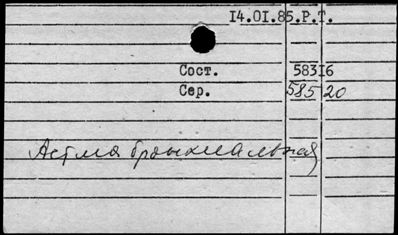 14.01.85.Р.Т.
Сост. 58316
Сер. 58520
Астма бронхиальная